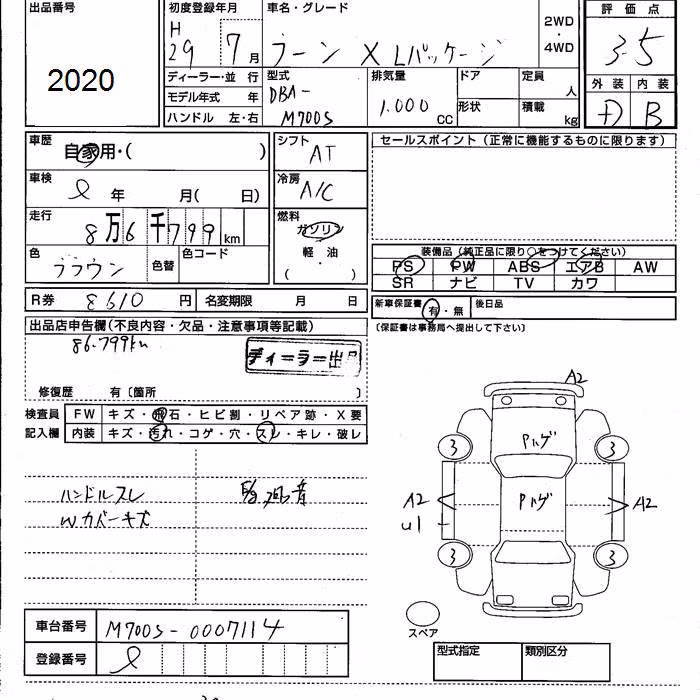 出品番号
2020
初度登録年月
H
29 7月
車名・グレード
ブーン X Lパッケージ
2WD
・
4WD
評価点
3.5
外装 内装
D B
ディーラー・並 行
モデル年式 年
ハンドル 左・右
型式
DBA-
M700S
排気量
1.000
cc
ドア
形状
定員
人
積載
kg
車歴
自家用・( )
車検
年 月( 日)
走行
8万6千799km
色
ブラウン
色替
色コード
シフト
AT
冷房
A/C
燃料
ガソリン
軽・油
( ・ )
セールスポイント (正常に機能するものに限ります)
装備品 (純正品に限り○をつけてください)
PS PW ABS エアB AW
SR ナビ TV カワ
R券 8610 円 名変期限 月 日
新車保証書 有・無 後日品
(保証書は事務局へ提出して下さい)
出品店申告欄(不良内容・欠品・注意事項等記載)
86.799km
ディーラー出品
修復歴 有〔箇所 〕
検査員 FW キズ・飛石・ヒビ割・リペア跡・X要
記入欄 内装 キズ・汚れ・コゲ・穴・スレ・キレ・破レ
ハンドルスレ
Wカバーキズ
A2
3 3
Pハゲ
A2 Pハゲ A2
U1
3 3
スペア
車台番号 M700S-0007114
登録番号
型式指定 類別区分